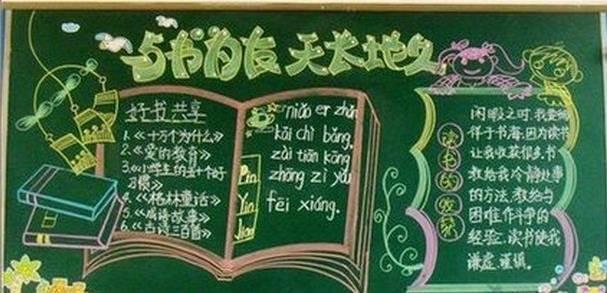 与书为友 天长地久
好书共享
1.《十万个为什么》
2.《爱的教育》
3.《小学生的五个好
习惯》
4.《格林童话》
5.《成语故事》
6.《古诗三百首》
niǎo er zhǎn
kāi chì bǎng.
zài tiān kōng
zhōng zì yóu
fēi xiáng.
Pin
Yin
读书的收获
闲暇之时,我要徜
徉于书海.因为读书
让我收获很多.书
教给我冷静处事
的方法,教给与
困难作斗争的
经验.读书使我
谦虚.谨慎.